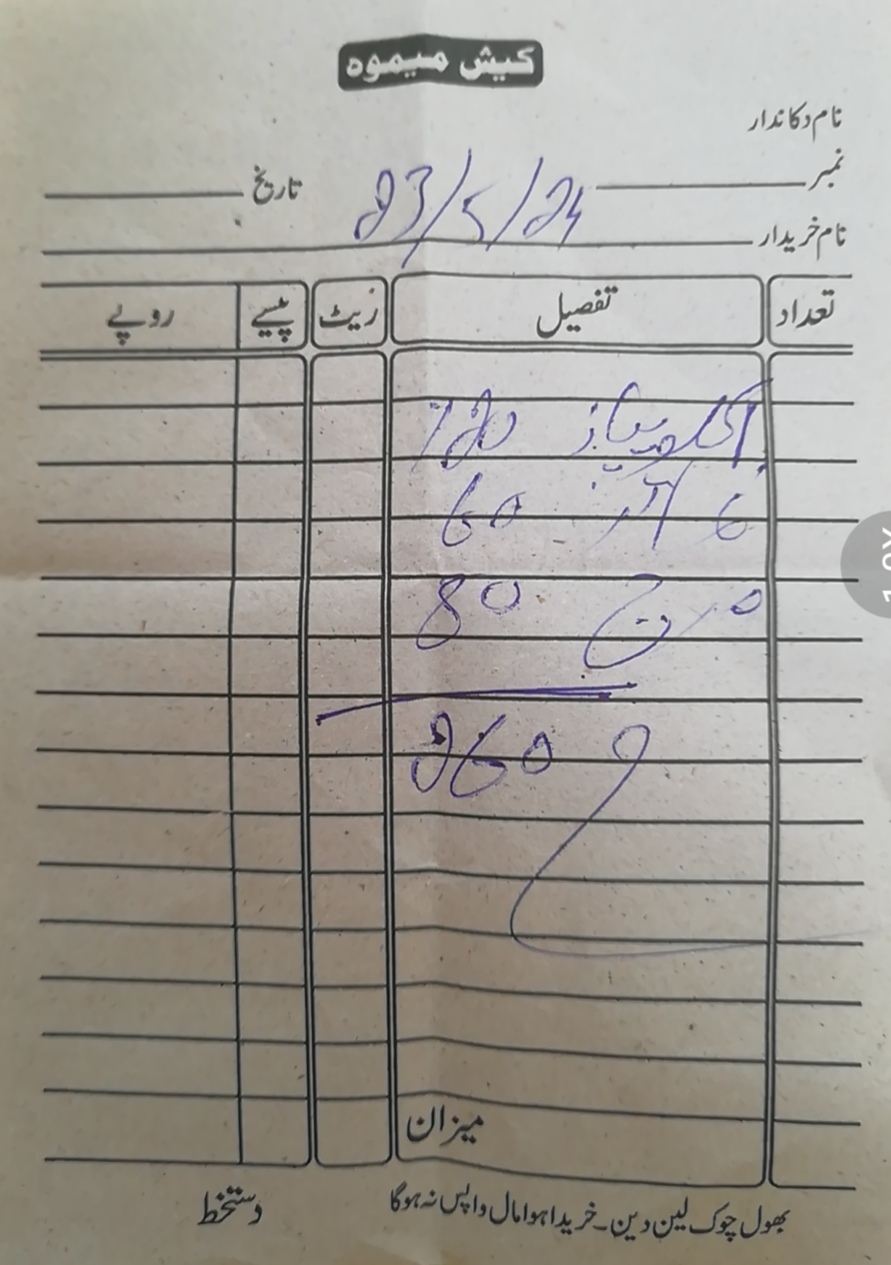 کیش میمو
نام دکاندار
نمبر تاریخ
23/5/24
نام خریدار
تعداد تفصیل ریٹ پیسے روپے
1کلو پیاز 120
60
مرچ 80
260
میزان
بھول چوک لین دین۔ خریدا ہوا مال واپس نہ ہوگا دستخط